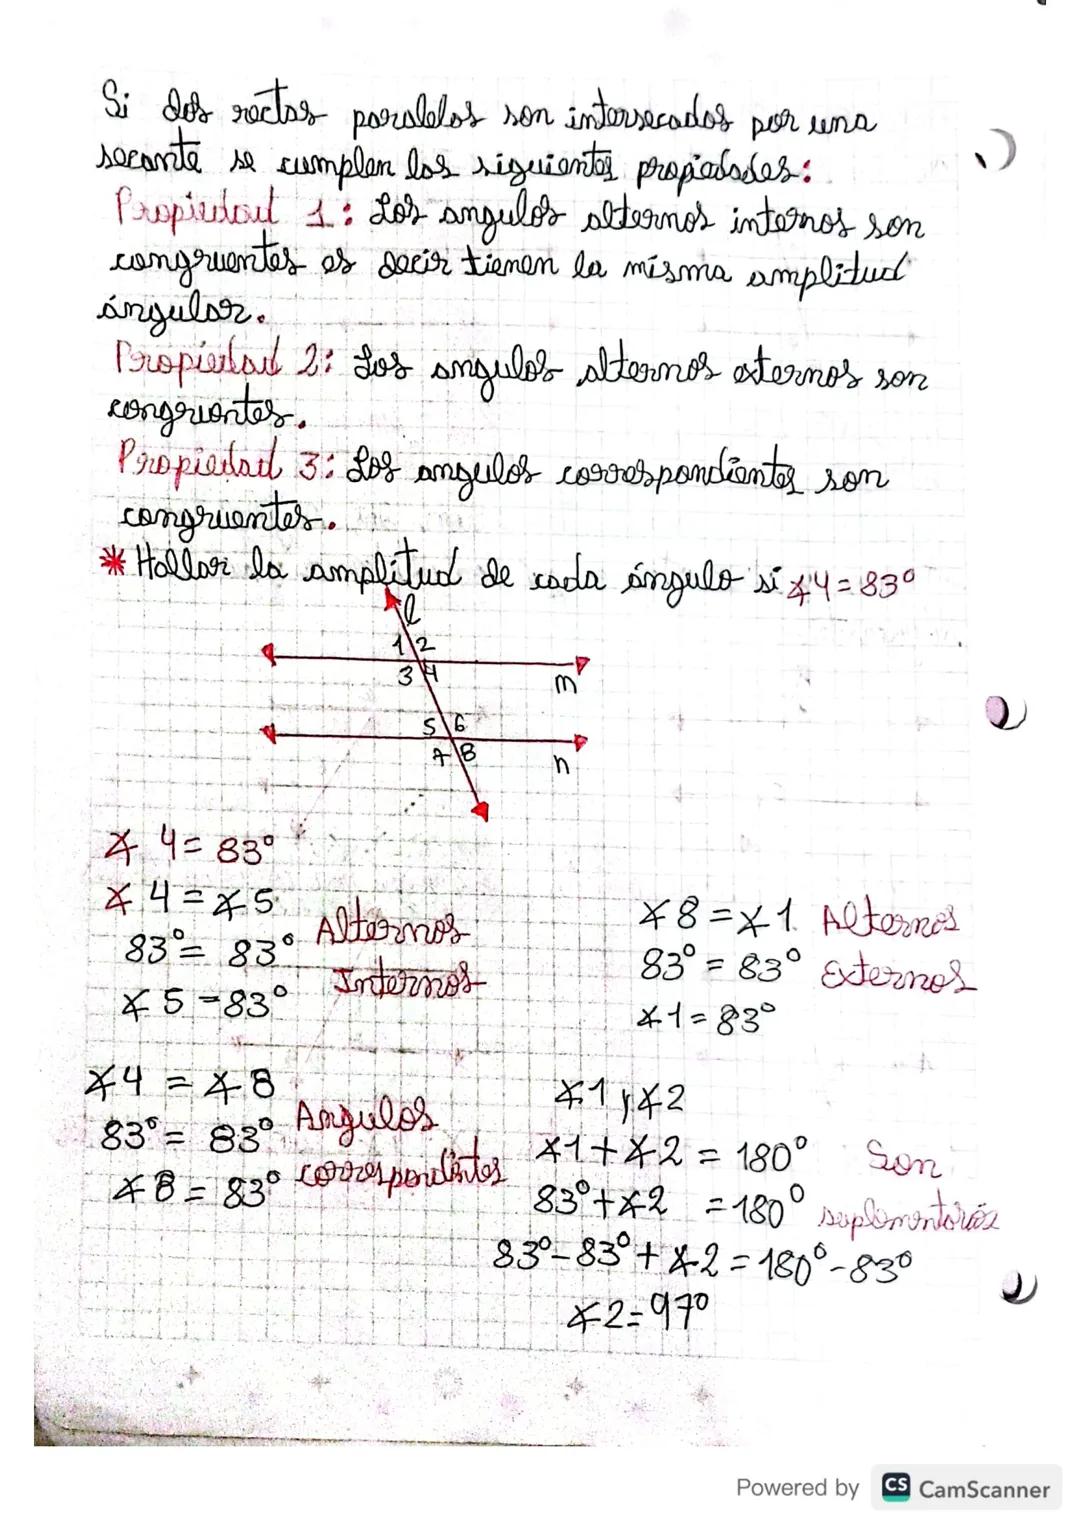 Si dos rectas paralelas son intersecadas por una
secante se cumplen las siguientes propiedades:
Propiedad 1: Los angulos alternos internos son
congruentes es decir tienen la misma amplitud
ángular.
Propiedad 2: Los angulos alternos externos son
congruentes.
Propiedad 3: Los angulos correspondientes son
congruentes.
* Hallar la amplitud de cada ángulo si ∡4=83°
l
1 2
3 4
m
5 6
7 8
n
∡ 4= 83°
∡ 4=∡5
83°= 83°
∡ 5 =83°
Alternos
Internos
∡8=∡1 Alternos
83°=83° Externos
∡1=83°
∡4 = ∡8
83°= 83°
∡8= 83°
Angulos
correspondintes
∡1 y ∡2
∡1+∡2 = 180° Son
83°+∡2 =180° suplementarios
83°-83°+∡2=180°-83°
∡2=97°
Powered by CS CamScanner